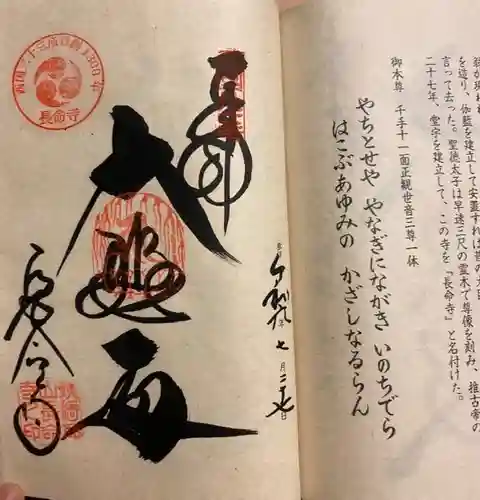 を造り、伽藍を建立して安置すれば
言って去った。聖徳太子は早速三尺の霊木で尊像を刻み、推古帝の
二十七年、堂宇を建立して、この寺を『長命寺』と名村けた。
御本尊　千手十一面正観世音三尊一体
やちとせや　やなぎにながき　いのちでら
はこぶあゆみの　かざしなるらん
奉拝
七月二十七日
大悲
長命寺
西国三十三所草創1300年
長命寺